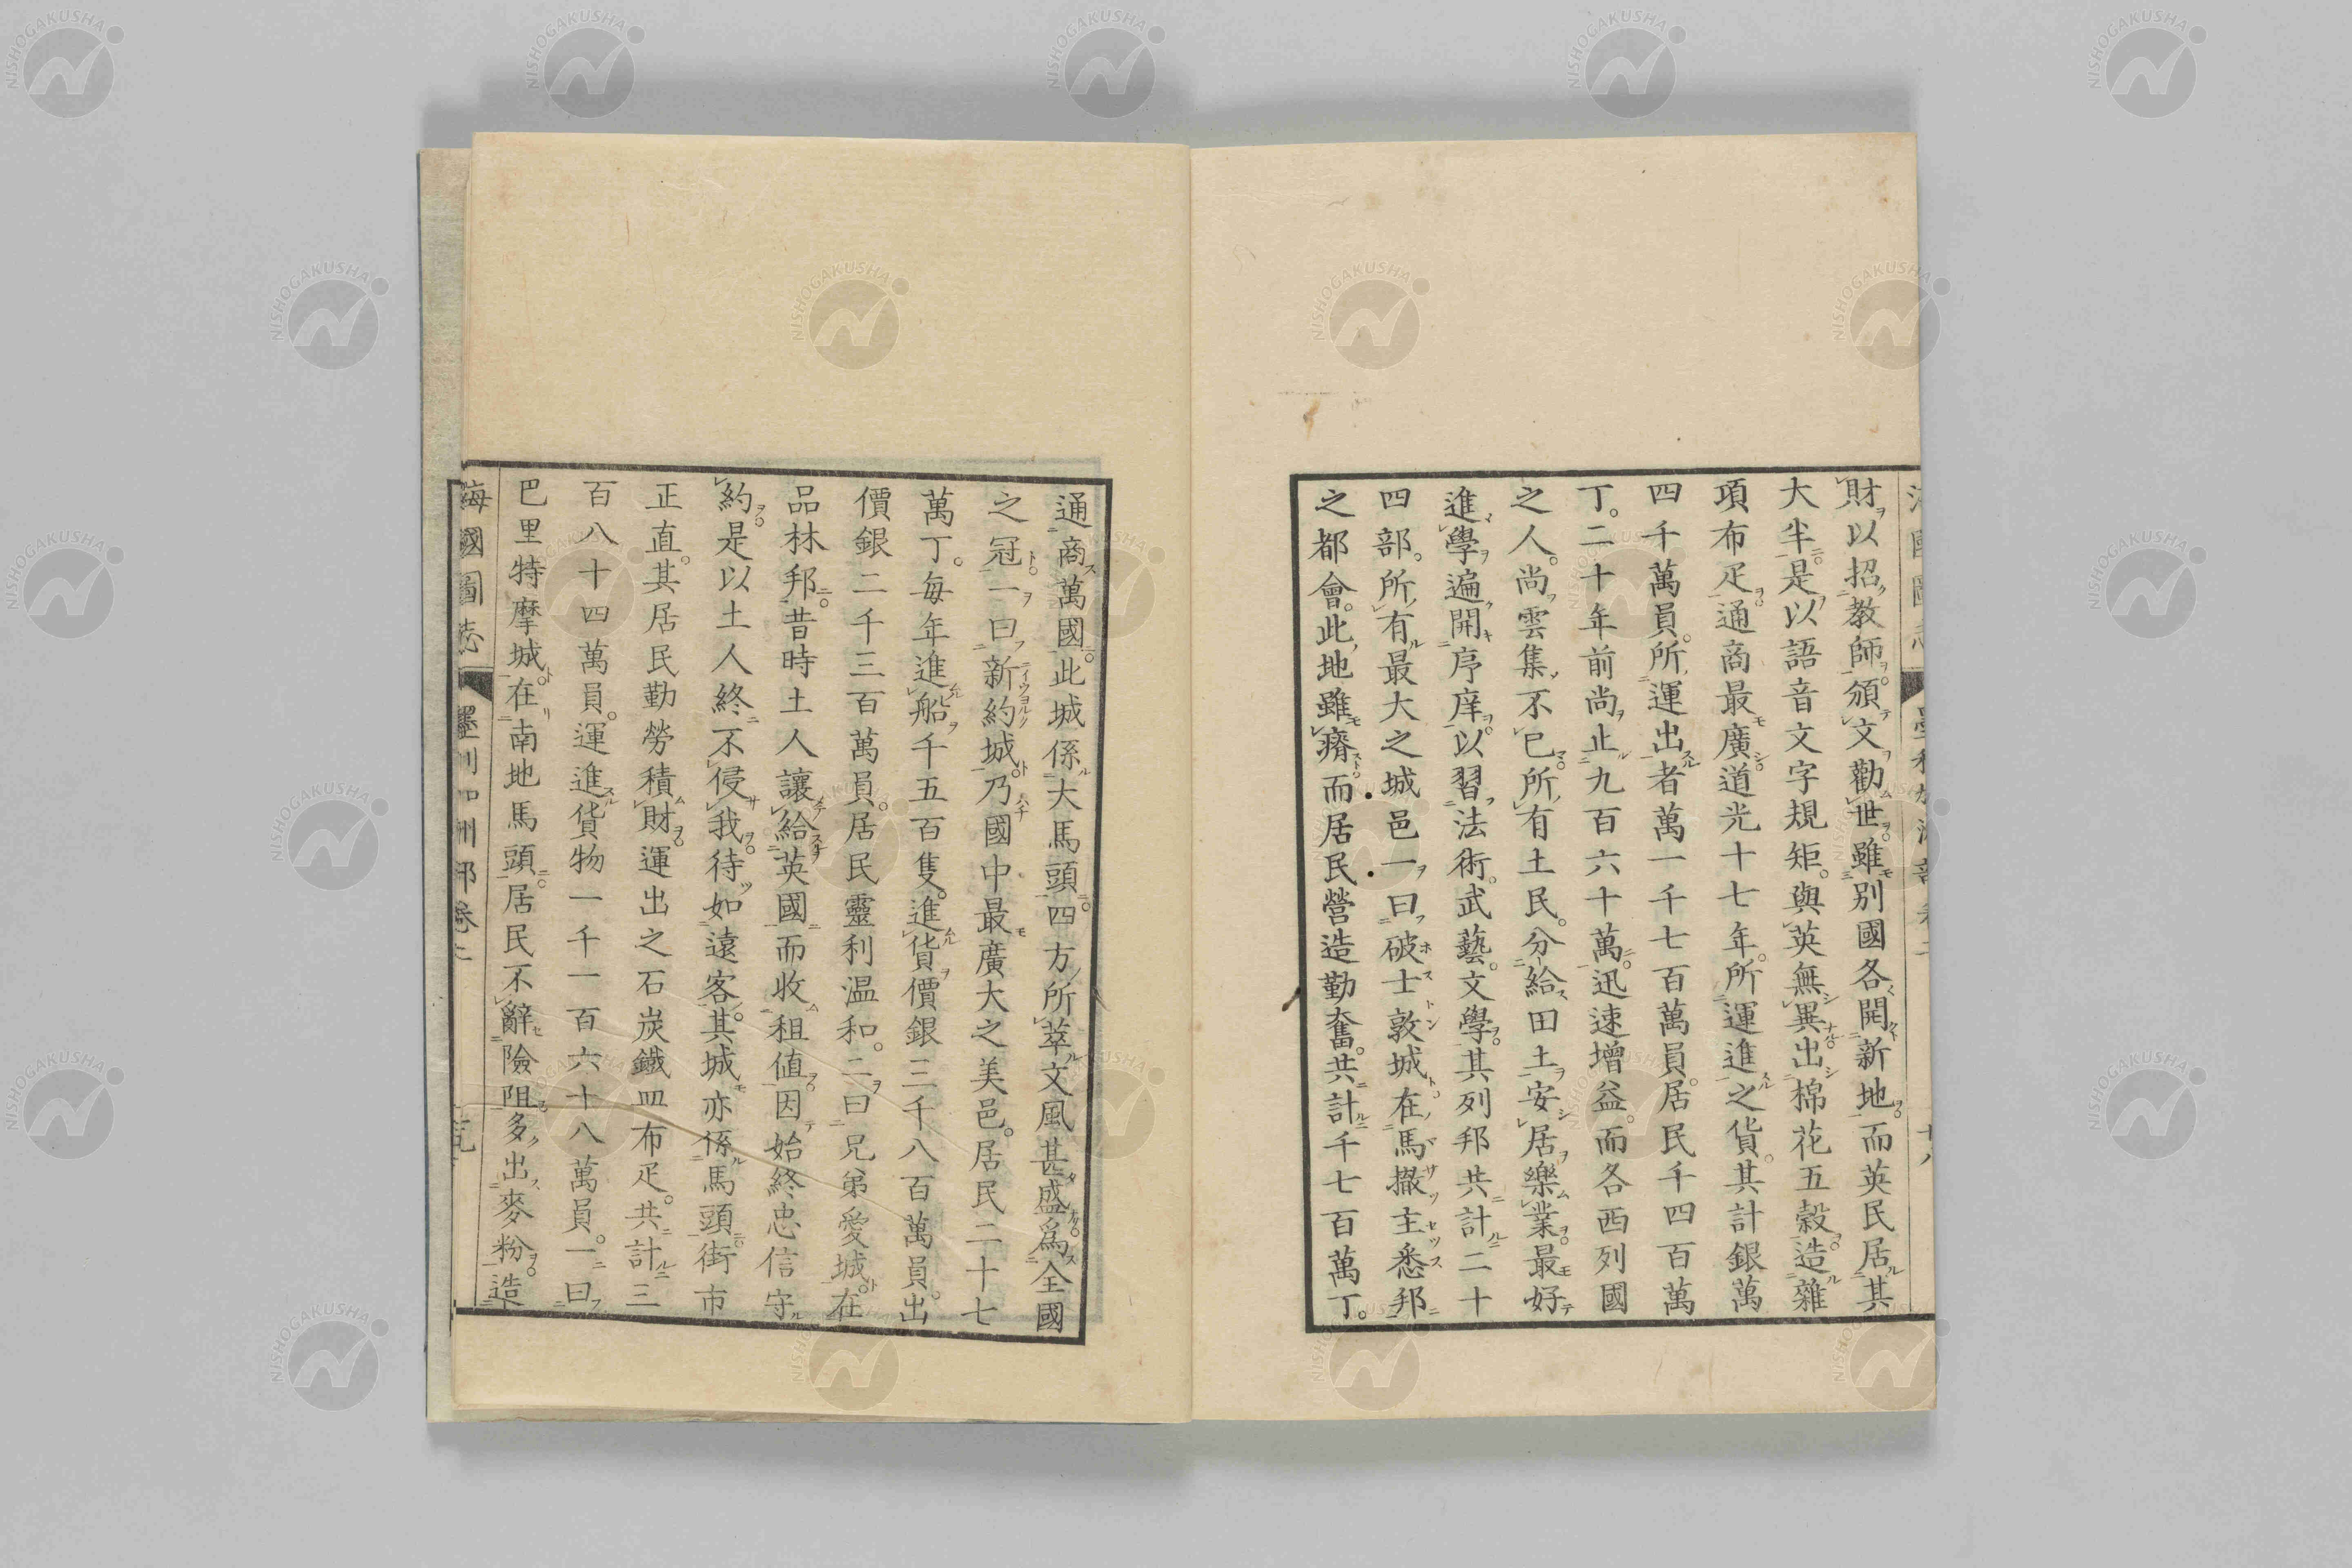 財以招教師。頒文勸世。雖別國各開新地。而英民居其
大半。是以語音文字規矩。與英無異。出棉花五穀。造雜
項布疋。通商最廣。道光十七年。所運進之貨。其計銀萬
四千萬員。所運出者萬一千七百萬員。居民千四百萬
丁。二十年前尚止九百六十萬。迅速增益。而各西列國
之人。尚雲集不已。所有土民。分給田土。安居樂業。最好
進學。遍開序庠。以習法術。武藝。文學。其列邦共計二十
四部。所有最大之城邑。一曰破士敦城。在馬撒主悉邦
之都會。此地雖瘠。而居民營造勤奮。共計千七百萬丁。
通商萬國。此城係大馬頭。四方所萃。文風甚盛。爲全國
之冠。一曰新約城。乃國中最廣大之美邑。居民二十七
萬丁。每年進船千五百隻。進貨價銀三千八百萬員。出
價銀二千三百萬員。居民靈利温和。二曰兄弟愛城。在
品林邦。昔時土人讓給英國而收租值。因始終忠信守
約。是以土人終不侵我。待如遠客。其城亦係馬頭。街市
正直。其居民勤勞積財。運出之石炭鐵皿布疋。共計三
百八十四萬員。運進貨物一千一百六十八萬員。一曰
巴里特摩城。在南地馬頭。居民不辭險阻。多出麥粉。造
海國圖志